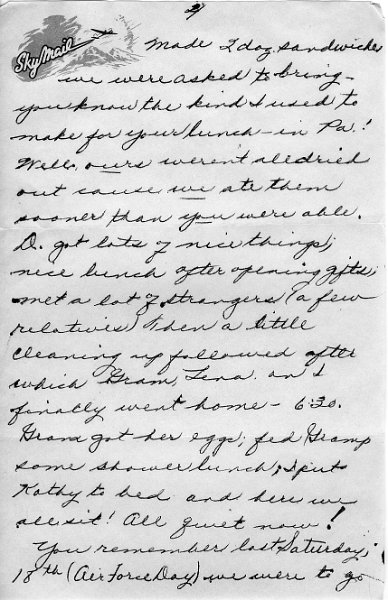 2)
Sky Mail
Made 2 doz. sandwiches
we were asked to bring -
you know the kind I used to
make for your lunch - in Pa.!
Well, ours weren't all dried
out cause we ate them
sooner than you were able.
D. got lots of nice things;
nice lunch after opening gifts;
met a lot of strangers (a few
relatives) Then a little
cleaning up followed after
which Gram, Lena an I
finally went home - 6:30.
Gram got her eggs; fed Gramp
some shower lunch; I put
Kathy to bed and here we
all sit! All quiet now!
You remember last Saturday,
18th (Air Force Day) we were to go